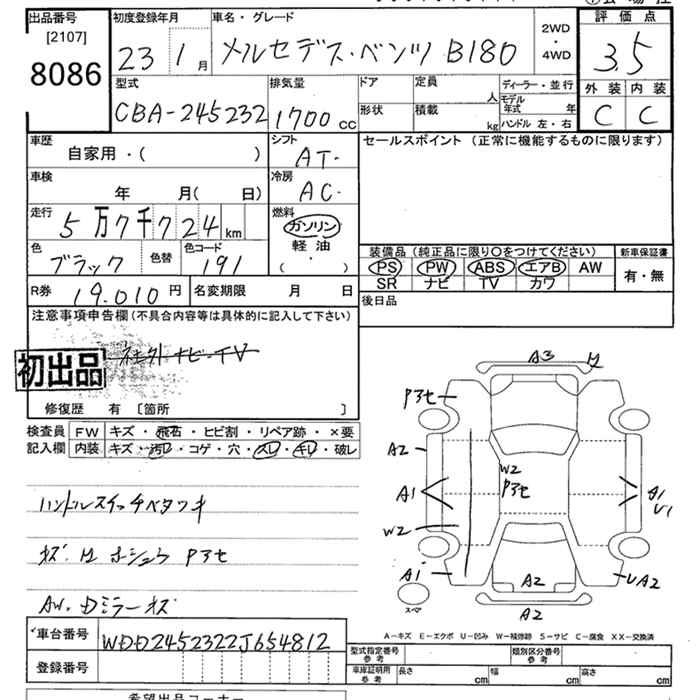 出品番号 初度登録年月 車名・グレード 評価点
[2107] 2WD
8086 23 1月 メルセデス・ベンツ B180 4WD 3.5
型式 排気量 ドア 定員 人 ディーラー・並行 外装 内装
CBA-245232 1700 cc 形状 積載 kg モデル年式 年 ハンドル 左・右 C C
車歴 シフト セールスポイント (正常に機能するものに限ります)
自家用・( ) AT-
車検 冷房
年 月( 日) AC-
走行 燃料
5万7千724km ガソリン
色 色替 色コード 軽油 装備品(純正品に限り〇をつけてください) 新車保証書
ブラック 191 ( ・ ) PS PW ABS エアB AW 有・無
SR ナビ TV カワ
R券 19.010円 名変期限 月 日 後日品
注意事項申告欄(不具合内容等は具体的に記入して下さい)
社外ナビ-TV
初出品
修復歴 有 [箇所 ]
検査員 FW キズ・飛石・ヒビ割・リペア跡・×要
記入欄 内装 キズ・汚レ・コゲ・穴・スレ・キレ・破レ
A3
Pアセ
A2
W2
Pアセ
A1
A1
U1
W2
A1
A2
UA2
スペア
A2
ハンドルスイッチベタツキ
キズ. ホショウ Pアセ
AW. Dミラーキズ
A-キズ E-エクボ U-凹み W-補修跡 S-サビ C-腐食 XX-交換済
車台番号 WDD2452322J654812
型式指定番号 参考 類別区分番号 参考
登録番号 車庫証明用 参考 長さ cm 幅 cm 高さ cm
希望出品コーナー